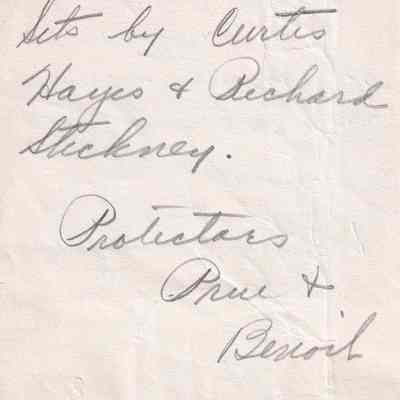 Sets by Curtis
Hayes & Richard
Stickney.
Protectors
Prue &
Benoit